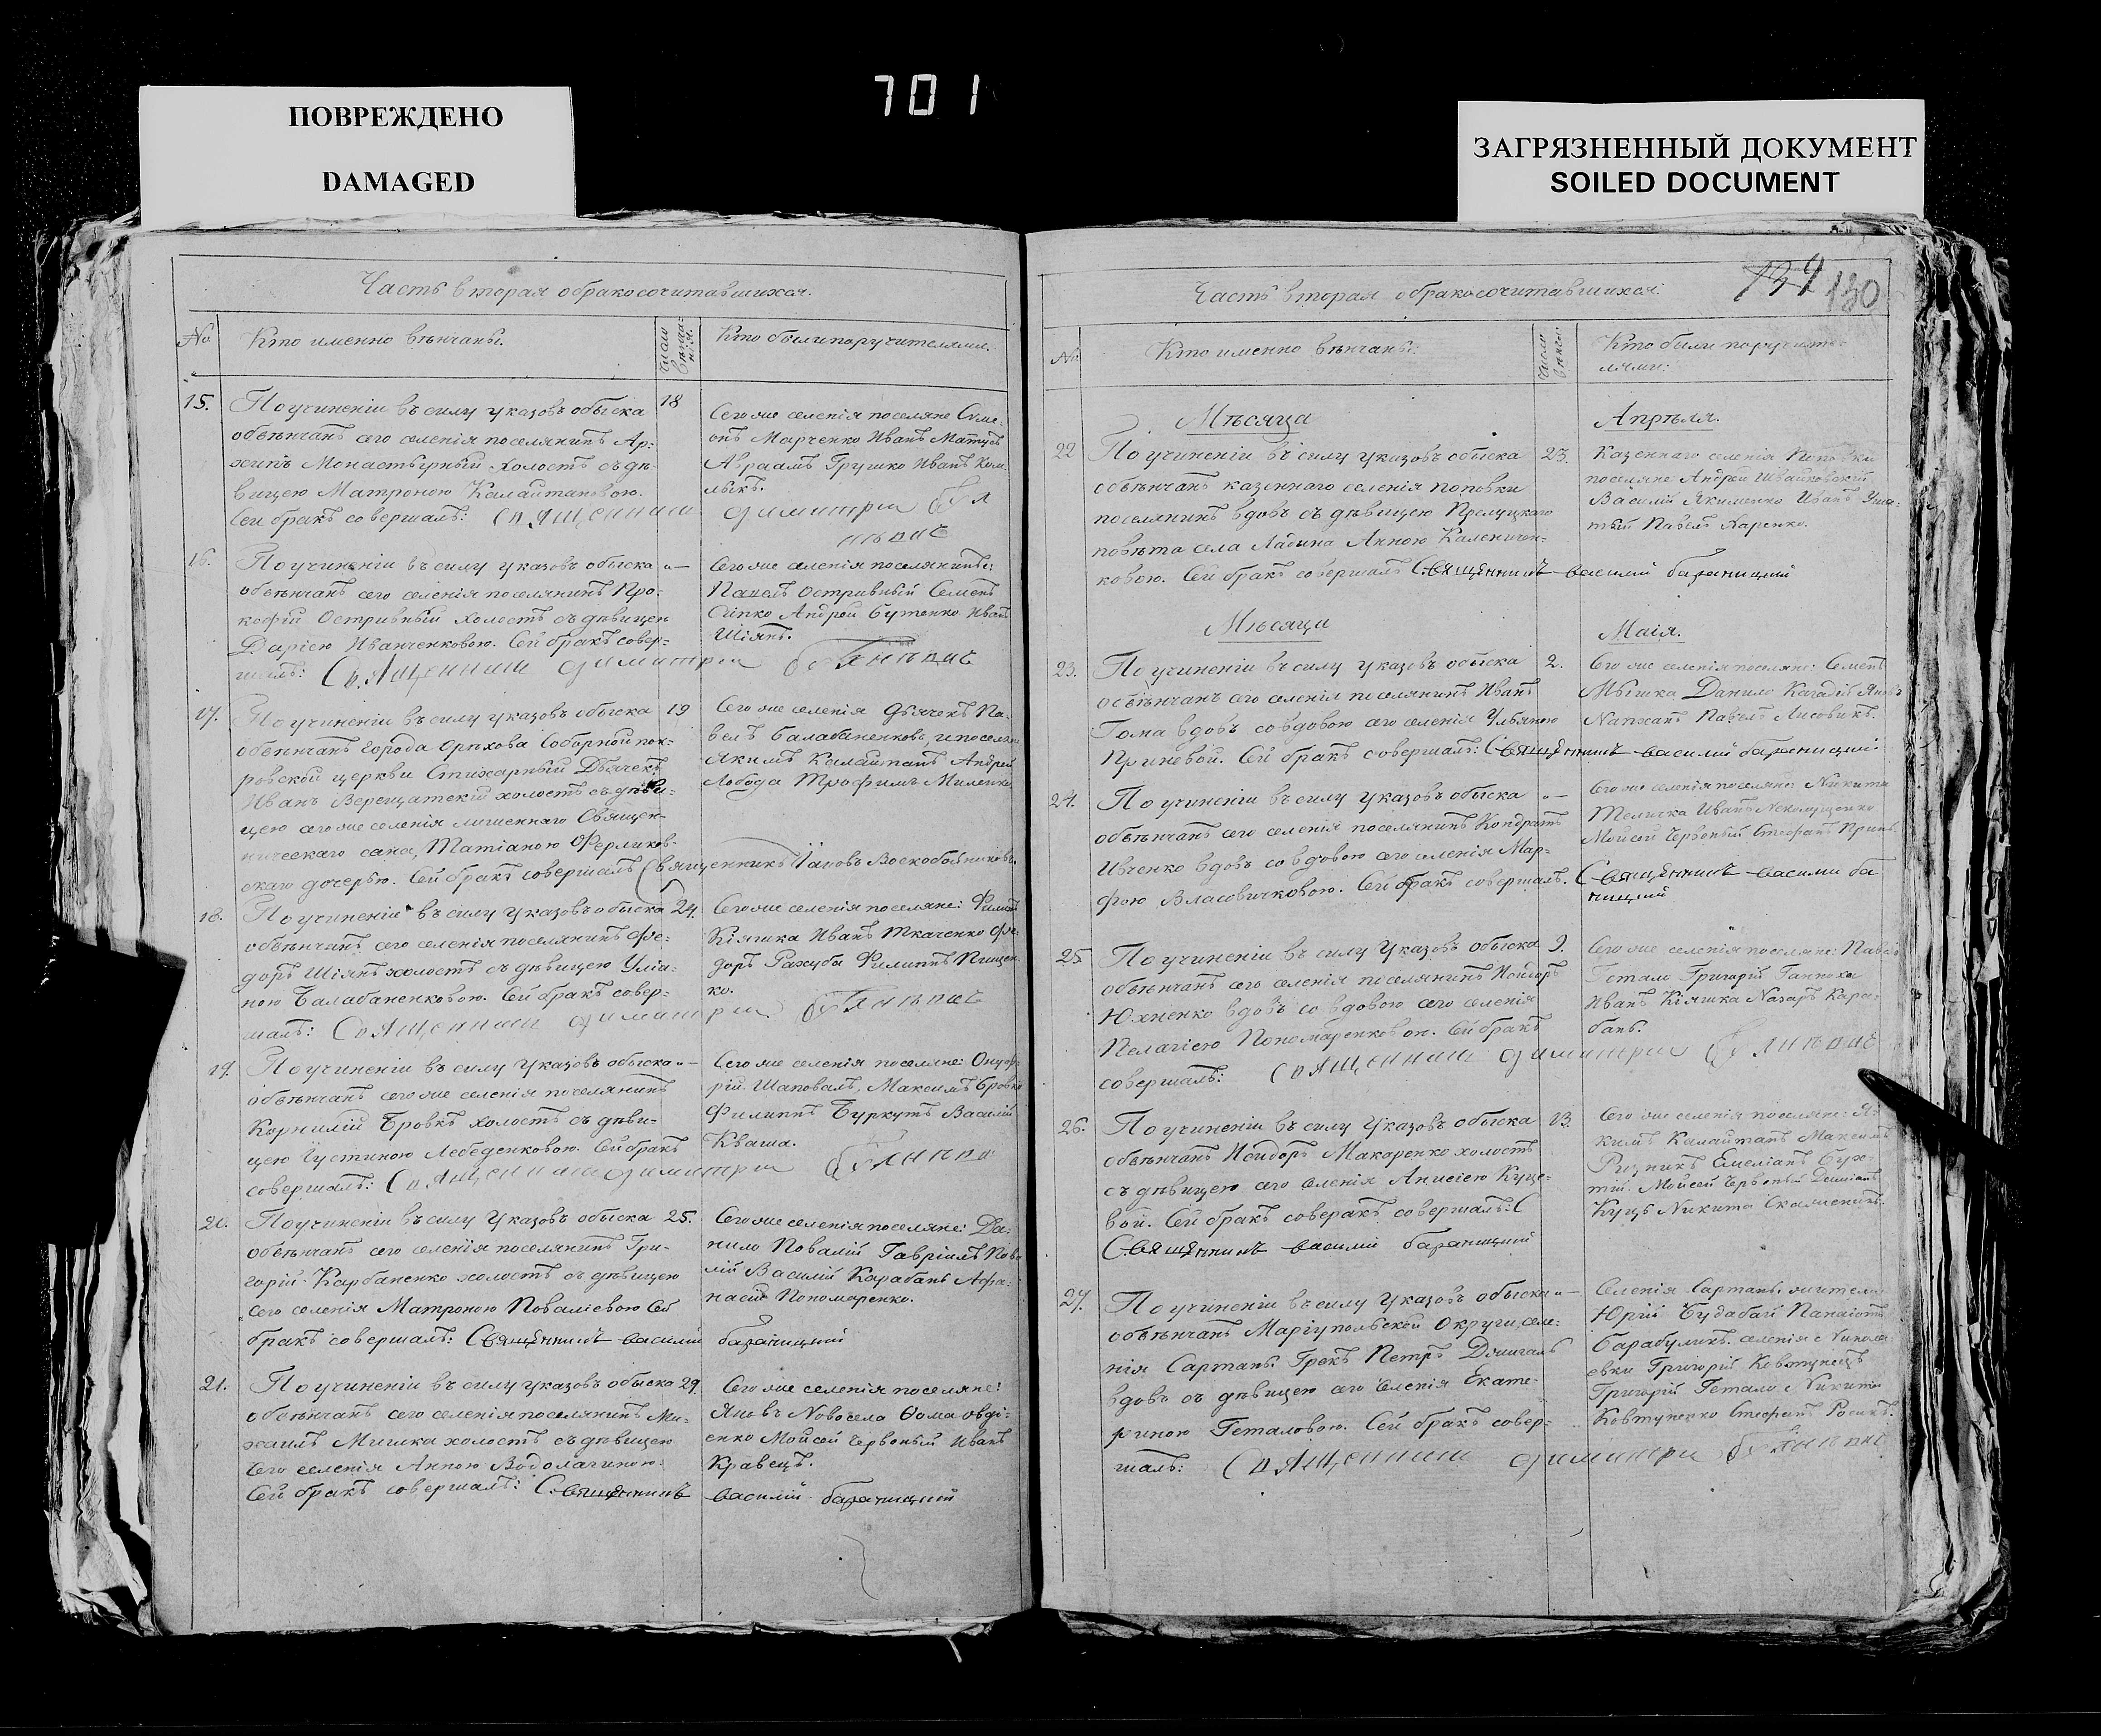 701
ПОВРЕЖДЕНО
DAMAGED
ЗАГРЯЗНЕННЫЙ ДОКУМЕНТ
SOILED DOCUMENT
Часть вторая обракосочитавшихся.
№
Кто именно вѣнчаны.
Число вѣнчанія.
Кто были поручителями.
15.
По учиненіи въ силу указовъ обыска
18
обвѣнчанъ сего селенія поселянинъ Ар-
хипъ Монастырный холостъ съ дѣ-
вицею Матроною Калайтановою.
Сей бракъ совершалъ: Священникъ Димитрій
Сего же селенія поселяне Симе-
онъ Марченко Иванъ
Авраамъ Грушко Иванъ Хом-
лыкъ.
16.
По учиненіи въ силу указовъ обыска „—
обвѣнчанъ сего селенія поселянинъ Про-
кофій Остривный холостъ съ дѣвицею
Даріею Иванченковою. Сей бракъ совер-
шалъ: Священникъ Димитрій
Сего же селенія поселянинъ:
Павелъ Остривный Семенъ
Сипко Андрей Бутенко Иванъ
Шіянъ.
17.
По учиненіи въ силу указовъ обыска
19
обвѣнчанъ города Орѣхова Соборной пок-
ровской церкви Стихарный Дьячекъ
Иванъ Верещатскій холостъ съ дѣви-
цею сего же селенія лишеннаго Священ-
ническаго сана, Татіаною Ферликов-
скаго дочерью. Сей бракъ совершалъ Священникъ Іаковъ Воскобойниковъ
Сего же селенія дьячекъ Па-
велъ Балабаненковъ, и поселяне
Якимъ Калайтанъ Андрей
Лобода Трофимъ Миленко
18.
По учиненіи въ силу указовъ обыска
24.
обвѣнчанъ сего селенія поселянинъ Фе-
доръ Шіянъ холостъ съ дѣвицею Уліа-
ною Балабаненковою. Сей бракъ совер-
шалъ: Священникъ Димитрій
Сего же селенія поселяне:
Кіяшка Иванъ Ткаченко Фе-
доръ Рахуба Филиппъ Пищен-
ко.
19.
По учиненіи въ силу указовъ обыска „—
обвѣнчанъ сего же селенія поселянинъ
Корнилій Бровкъ холостъ съ дѣви-
цею Густиною Лебеденковою. Сей бракъ
совершалъ: Священникъ Димитрій
Сего же селенія поселяне: Онуф-
рій Шаповалъ, Максимъ Бровко
Филиппъ Буркутъ Василій
Кваша.
20.
По учиненіи въ силу указовъ обыска
25.
обвѣнчанъ сего селенія поселянинъ Гри-
горій Карбаненко холостъ съ дѣвицею
сего селенія Матроною Поваліевою Сей
бракъ совершалъ: Священникъ Василій Базаницкій
Сего же селенія поселяне: Да-
нило Повалій Гавріилъ Пова-
лій Василій Карабанъ Афа-
насій Пономаренко.
21.
По учиненіи въ силу указовъ обыска
29.
обвѣнчанъ сего селенія поселянинъ Ми-
хаилъ Мишка холостъ съ дѣвицею
сего селенія Анною Водолагиною.
Сей бракъ совершалъ: Священникъ Василій Базаницкій
Сего же селенія поселяне:
Яковъ Новосела Ѳома Овді-
енко Мойсей Червоный Иванъ
Кравецъ.
Часть вторая обракосочитавшихся.
130
№
Кто именно вѣнчаны.
Кто были поручите-
лями.
Мѣсяца
Апрѣля.
22
По учиненіи въ силу указовъ обыска
23.
обвѣнчанъ казеннаго селенія Поповки
поселянинъ вдовъ съ дѣвицею Прелуцкаго
повѣта села Ладина Анною Каленичен-
ковою. Сей бракъ совершалъ Священникъ Василій Базаницкій
Казеннаго селенія Поповки
поселяне Андрей Швайковскій
Василій Якименко Иванъ
Павелъ Харенко.
Мѣсяца
Маія.
23.
По учиненіи въ силу указовъ обыска
2.
обвѣнчанъ сего селенія поселянинъ Иванъ
Гома вдовъ со вдовою сего селенія Ульяною
Приневой. Сей бракъ совершалъ: Священникъ Василій Базаницкій
Сего же селенія поселяне: Семенъ
Мышка Данило Яковъ
Павелъ Лисовикъ.
24.
По учиненіи въ силу указовъ обыска „—
обвѣнчанъ сего селенія поселянинъ Кондратъ
Ивченко вдовъ со вдовою сего селенія Мар-
фою Власовичковою. Сей бракъ совершалъ. Священникъ Василій Ба
ницкій
Сего же селенія поселяне Никита
Теличка Иванъ
Мойсей Червоный Стефанъ Принь.
25.
По учиненіи въ силу указовъ обыска
9.
обвѣнчанъ сего селенія поселянинъ Исидоръ
Юхненко вдовъ со вдовою сего селенія
Пелагіею Пономаренковою. Сей бракъ
совершалъ: Священникъ Димитрій
Сего же селенія поселяне: Павелъ
Гетало Григорій Ганноха
Иванъ Кіяшка Назаръ Кара-
банъ.
26.
По учиненіи въ силу указовъ обыска
13.
обвѣнчанъ Исидоръ Макоренко холостъ
съ дѣвицею сего селенія Анисіею Куце-
вой. Сей бракъ соверакъ совершалъ:
Священникъ Василій Базаницкій
Сего же селенія поселяне: Я-
кимъ Калайтанъ Максимъ
Ризникъ Емеліанъ Бух-
тій. Мойсей Червоный Даміанъ
Куцъ Никита
27.
По учиненіи въ силу указовъ обыска „—
обвѣнчанъ Маріупольской Округи, селе-
нія Сартаны Грекъ Петръ Джигаль
вдовъ съ дѣвицею сего селенія Екате-
риною Геталовою. Сей бракъ совер-
шалъ: Священникъ Димитрій
Селенія Сартаны жители
Юрій Будабай Панаіотъ
Барабулихъ. селенія Никола-
евки Григорій Ковтунецъ
Григорій Гетало Никита
Ковтуненко Стефанъ